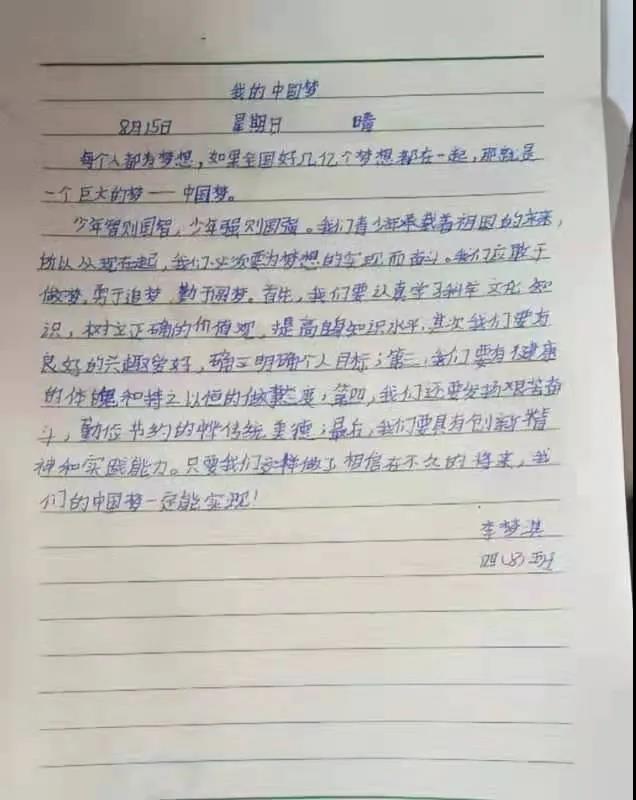 我的中国梦
8月15日 星期日 晴
每个人都有梦想，如果全国好几亿个梦想都在一起，那就是
一个巨大的梦——中国梦。
少年智则国智，少年强则国强。我们青少年承载着祖国的未来，
所以从现在起，我们必须要为梦想的实现而奋斗。我们应敢于
做梦，勇于追梦，勤于圆梦。首先，我们要认真学习科学文化知
识，树立正确的价值观，提高自身知识水平，其次我们要有
良好的兴趣爱好，确立明确个人目标；第三，我们要有健康
的体魄和持之以恒的做事态度；第四，我们还要发扬艰苦奋
斗，勤俭节约的传统美德；最后，我们要具有创新精
神和实践能力。只要我们这样做了相信在不久的将来，我
们的中国梦一定能实现！
李梦淇
四（8）班